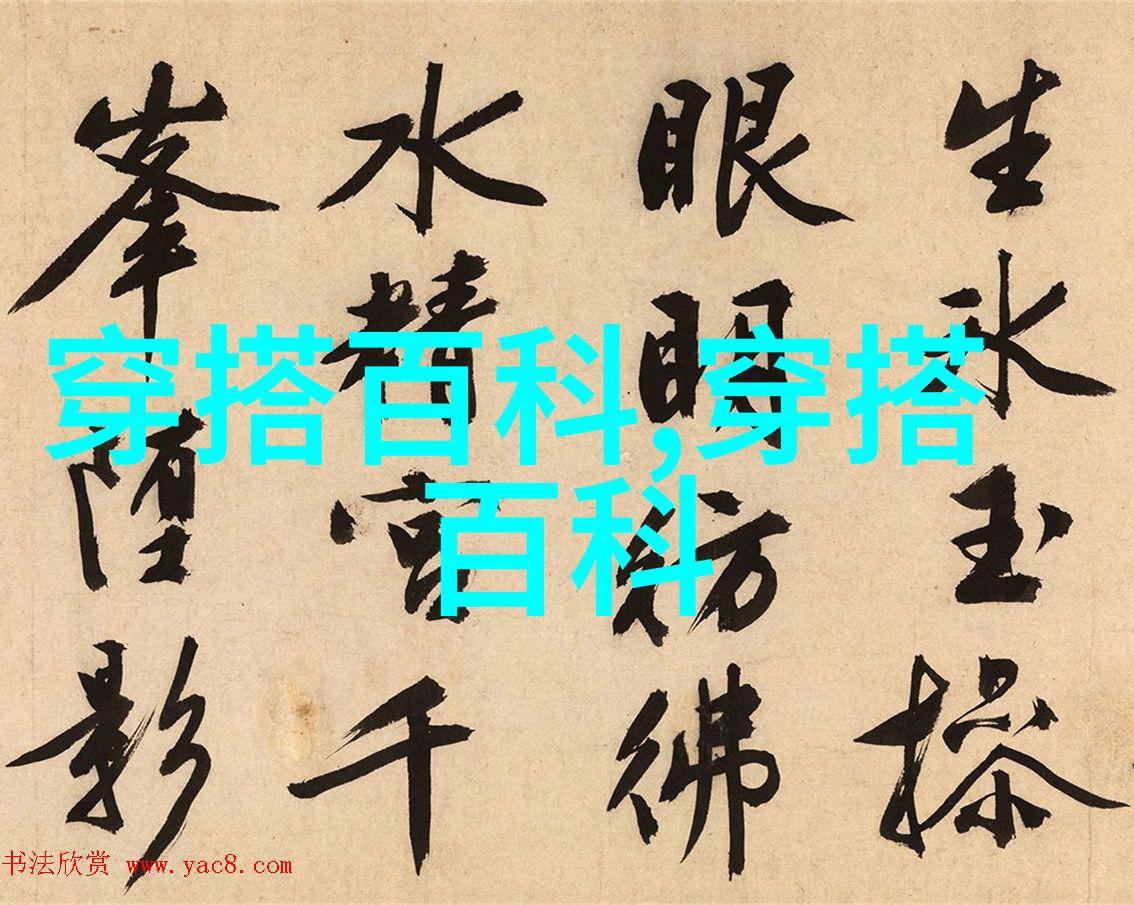 生氷玉操
眼明彷彿
水精宮千
峯堕影
穿搭百科,穿搭
百科
书法欣赏 www.yac8.com